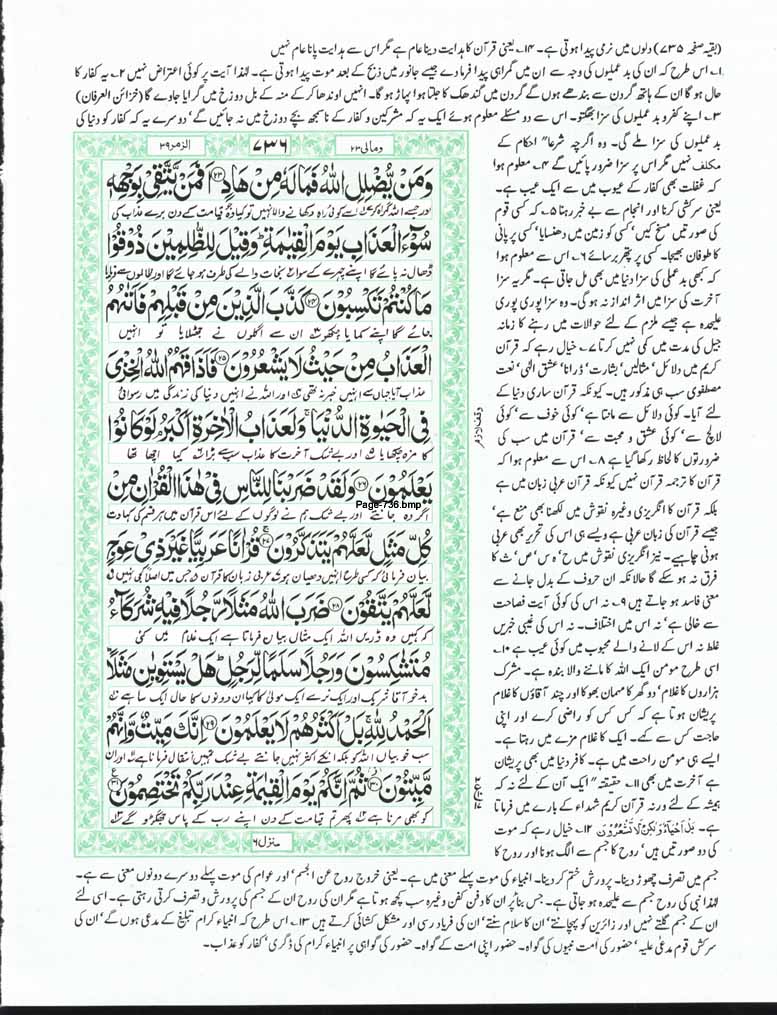 (بقیہ صفحہ ۷۳۵) دلوں میں نرمی پیدا ہوتی ہے۔ ۱۴۔ یعنی قرآن کا ہدایت دینا عام ہے مگر اس سے ہدایت پانا عام نہیں
۱۔ اس طرح کہ ان کی بد عملیوں کی وجہ سے ان میں گمراہی پیدا فرما دے جیسے جانور میں ذبح کے بعد موت پیدا ہوتی ہے۔ لہٰذا آیت پر کوئی اعتراض نہیں ۲۔ یہ کفار کا
حال ہو گا ان کے ہاتھ گردن سے بندھے ہوں گے گردن میں گندھک کا جلتا ہوا پہاڑ ہو گا۔ انہیں اوندھا کر کے منہ کے بل دوزخ میں گرایا جاوے گا (خزائن العرفان)
۳۔ اپنے کفر و بد عملیوں کی سزا بھگتو۔ اس سے دو مسئلے معلوم ہوئے ایک یہ کہ مشرکین و کفار کے ناسمجھ بچے دوزخ میں نہ جائیں گے‘ دوسرے یہ کہ کفار کو دنیا کی
بد عملیوں کی سزا ملے گی۔ وہ اگرچہ شرعاً احکام کے
مکلف نہیں مگر اس پر سزا ضرور پائیں گے ۴۔ معلوم ہوا
کہ غفلت بھی کفار کے عیوب میں سے ایک عیب ہے۔
یعنی سرکشی کرنا اور انجام سے بے خبر رہنا ۵۔ کہ کسی قوم
کی صورتیں مسخ کیں‘ کسی کو زمین میں دھنسایا‘ کسی پر پانی
کا طوفان بھیجا۔ کسی پر پتھر برسائے ۶۔ اس سے معلوم ہوا
کہ کبھی بد عملی کی سزا دنیا میں بھی مل جاتی ہے۔ مگر یہ سزا
آخرت کی سزا میں اثر انداز نہ ہوگی۔ وہ سزا پوری پوری
علیحدہ ہے جیسے ملزم کے لئے حوالات میں رہنے کا زمانہ
جیل کی مدت میں کمی نہیں کرتا ۷۔ خیال رہے کہ قرآن
کریم میں دلائل‘ مثالیں‘ بشارت‘ ڈرانا‘ عشق الٰہی‘ نعت
مصطفوی سب ہی مذکور ہیں۔ کیونکہ قرآن ساری دنیا کے
لئے آیا۔ کوئی دلائل سے مانتا ہے‘ کوئی خوف سے‘ کوئی
لالچ سے‘ کوئی عشق و محبت سے‘ قرآن میں سب کی
ضرورتوں کا لحاظ رکھا گیا ہے ۸۔ اس سے معلوم ہوا کہ
قرآن کا ترجمہ قرآن نہیں کیونکہ قرآن عربی زبان میں ہے
بلکہ قرآن کا انگریزی وغیرہ نقوش میں لکھنا بھی منع ہے‘
جیسے قرآن کی زبان عربی ہے ویسے ہی اس کی تحریر بھی عربی
ہونی چاہیے۔ نیز انگریزی نقوش میں ح‘ ہ س‘ ص‘ ث کا
فرق نہ ہو سکے گا حالانکہ ان حروف کے بدل جانے سے
معنی فاسد ہو جاتے ہیں ۹۔ نہ اس کی کوئی آیت فصاحت
سے خالی ہے‘ نہ اس میں اختلاف۔ نہ اس کی غیبی خبریں
غلط نہ اس کے لانے والے محبوب میں کوئی عیب ہے ۱۰۔
اسی طرح مومن ایک اللہ کا ماننے والا بندہ ہے۔ مشرک
ہزاروں کا غلام‘ دو گھر کا مہمان بھوکا اور چند آقاؤں کا غلام
پریشان ہوتا ہے کہ کس کس کو راضی کرے اور اپنی
حاجت کس سے کہے۔ ایک کا غلام مزے میں رہتا ہے۔
ایسے ہی مومن راحت میں ہے۔ کافر دنیا میں بھی پریشان
ہے آخرت میں بھی ۱۱۔ حقیقتہً ایک آن کے لئے نہ کہ
ہمیشہ کے لئے ورنہ قرآن کریم شہداء کے بارے میں فرماتا
ہے۔ بَلْ اَحْيَآءٌ وَّلٰكِنْ لَّا تَشْعُرُوْنَ ۱۲۔ خیال رہے کہ موت
کی دو صورتیں ہیں‘ روح کا جسم سے الگ ہونا اور روح کا
جسم میں تصرف چھوڑ دینا۔ پرورش ختم کر دینا۔ انبیاء کی موت پہلے معنی میں ہے۔ یعنی خروج روح عن الجسم‘ اور عوام کی موت پہلے دوسرے دونوں معنی سے ہے۔
لہٰذا نبی کی روح جسم سے علیحدہ ہو جاتی ہے۔ جس بنا پر ان کا دفن کفن وغیرہ سب کچھ ہوتا ہے مگر ان کی روح ان کے جسم کی پرورش و تصرف کرتی رہتی ہے۔ اسی لئے
ان کے جسم گلتے نہیں اور زائرین کو پہچانتے‘ ان کا سلام سنتے‘ ان کی فریاد رسی اور مشکل کشائی کرتے ہیں ۱۳۔ اس طرح کہ انبیاء کرام تبلیغ کے مدعی ہوں گے‘ ان کی
سرکش قوم مدعیٰ علیہ‘ حضور کی امت نبیوں کی گواہ۔ حضور اپنی امت کے گواہ۔ حضور کی گواہی پر انبیاء کرام کی ڈگری‘ کفار کو عذاب۔
ومالی ۲۳
۷۳۶
الزمر ۳۹
وَمَنْ يُّضْلِلِ اللّٰهُ فَمَا لَهٗ مِنْ هَادٍ ﴿۲۳﴾ اَفَمَنْ يَّتَّقِيْ بِوَجْهِهٖ
اور جسے اللہ گمراہ کرے اسے کوئی راہ دکھانے والا نہیں تو کیا وہ جو قیامت کے دن برے عذاب کی
سُوْٓءَ الْعَذَابِ يَوْمَ الْقِيٰمَةِ ؕ وَقِيْلَ لِلظّٰلِمِيْنَ ذُوْقُوْا
ڈھال نہ پائے گا اپنے چہرے کے سوا نجات والے کی طرح ہو جائے گا اور ظالموں سے فرمایا
مَا كُنْتُمْ تَكْسِبُوْنَ ﴿۲۴﴾ كَذَّبَ الَّذِيْنَ مِنْ قَبْلِهِمْ فَاَتٰىهُمُ
جائے گا اپنا کمایا چکھو ان سے اگلوں نے جھٹلایا تو انہیں
الْعَذَابُ مِنْ حَيْثُ لَا يَشْعُرُوْنَ ﴿۲۵﴾ فَاَذَاقَهُمُ اللّٰهُ الْخِزْيَ
عذاب آیا جہاں سے انہیں خبر نہ تھی اور اللہ نے انہیں دنیا کی زندگی میں رسوائی
فِي الْحَيٰوةِ الدُّنْيَا ۚ وَلَعَذَابُ الْاٰخِرَةِ اَكْبَرُ ۘ لَوْ كَانُوْا
کا مزہ چکھایا اور بے شک آخرت کا عذاب سب سے بڑا کیا اچھا تھا
يَعْلَمُوْنَ ﴿۲۶﴾ وَلَقَدْ ضَرَبْنَا لِلنَّاسِ فِيْ هٰذَا الْقُرْاٰنِ مِنْ
Page-736.bmp
اگر وہ جانتے اور بے شک ہم نے لوگوں کے لئے اس قرآن میں ہر قسم کی کہاوت
كُلِّ مَثَلٍ لَّعَلَّهُمْ يَتَذَكَّرُوْنَ ﴿۲۷﴾ قُرْاٰنًا عَرَبِيًّا غَيْرَ ذِيْ عِوَجٍ
بیان فرمائی کہ کسی طرح انہیں دھیان ہو عربی زبان کا قرآن جس میں اصلاً کجی نہیں
لَّعَلَّهُمْ يَتَّقُوْنَ ﴿۲۸﴾ ضَرَبَ اللّٰهُ مَثَلًا رَّجُلًا فِيْهِ شُرَكَآءُ
کہ کہیں وہ ڈریں اللہ ایک مثال بیان فرماتا ہے ایک غلام میں کئی
مُتَشٰكِسُوْنَ وَرَجُلًا سَلَمًا لِّرَجُلٍ ؕ هَلْ يَسْتَوِيٰنِ مَثَلًا ؕ
بدخو آقا شریک اور ایک نرے ایک مولیٰ کا کیا ان دونوں کا حال ایک سا ہے
اَلْحَمْدُ لِلّٰهِ ۚ بَلْ اَكْثَرُهُمْ لَا يَعْلَمُوْنَ ﴿۲۹﴾ اِنَّكَ مَيِّتٌ وَّاِنَّهُمْ
سب خوبیاں اللہ کو بلکہ انکے اکثر نہیں جانتے بے شک تمہیں انتقال فرمانا ہے اور ان
مَّيِّتُوْنَ ﴿۳۰﴾ ثُمَّ اِنَّكُمْ يَوْمَ الْقِيٰمَةِ عِنْدَ رَبِّكُمْ تَخْتَصِمُوْنَ ﴿۳۱﴾
کو بھی مرنا ہے پھر تم قیامت کے دن اپنے رب کے پاس جھگڑو گے
منزل ۶